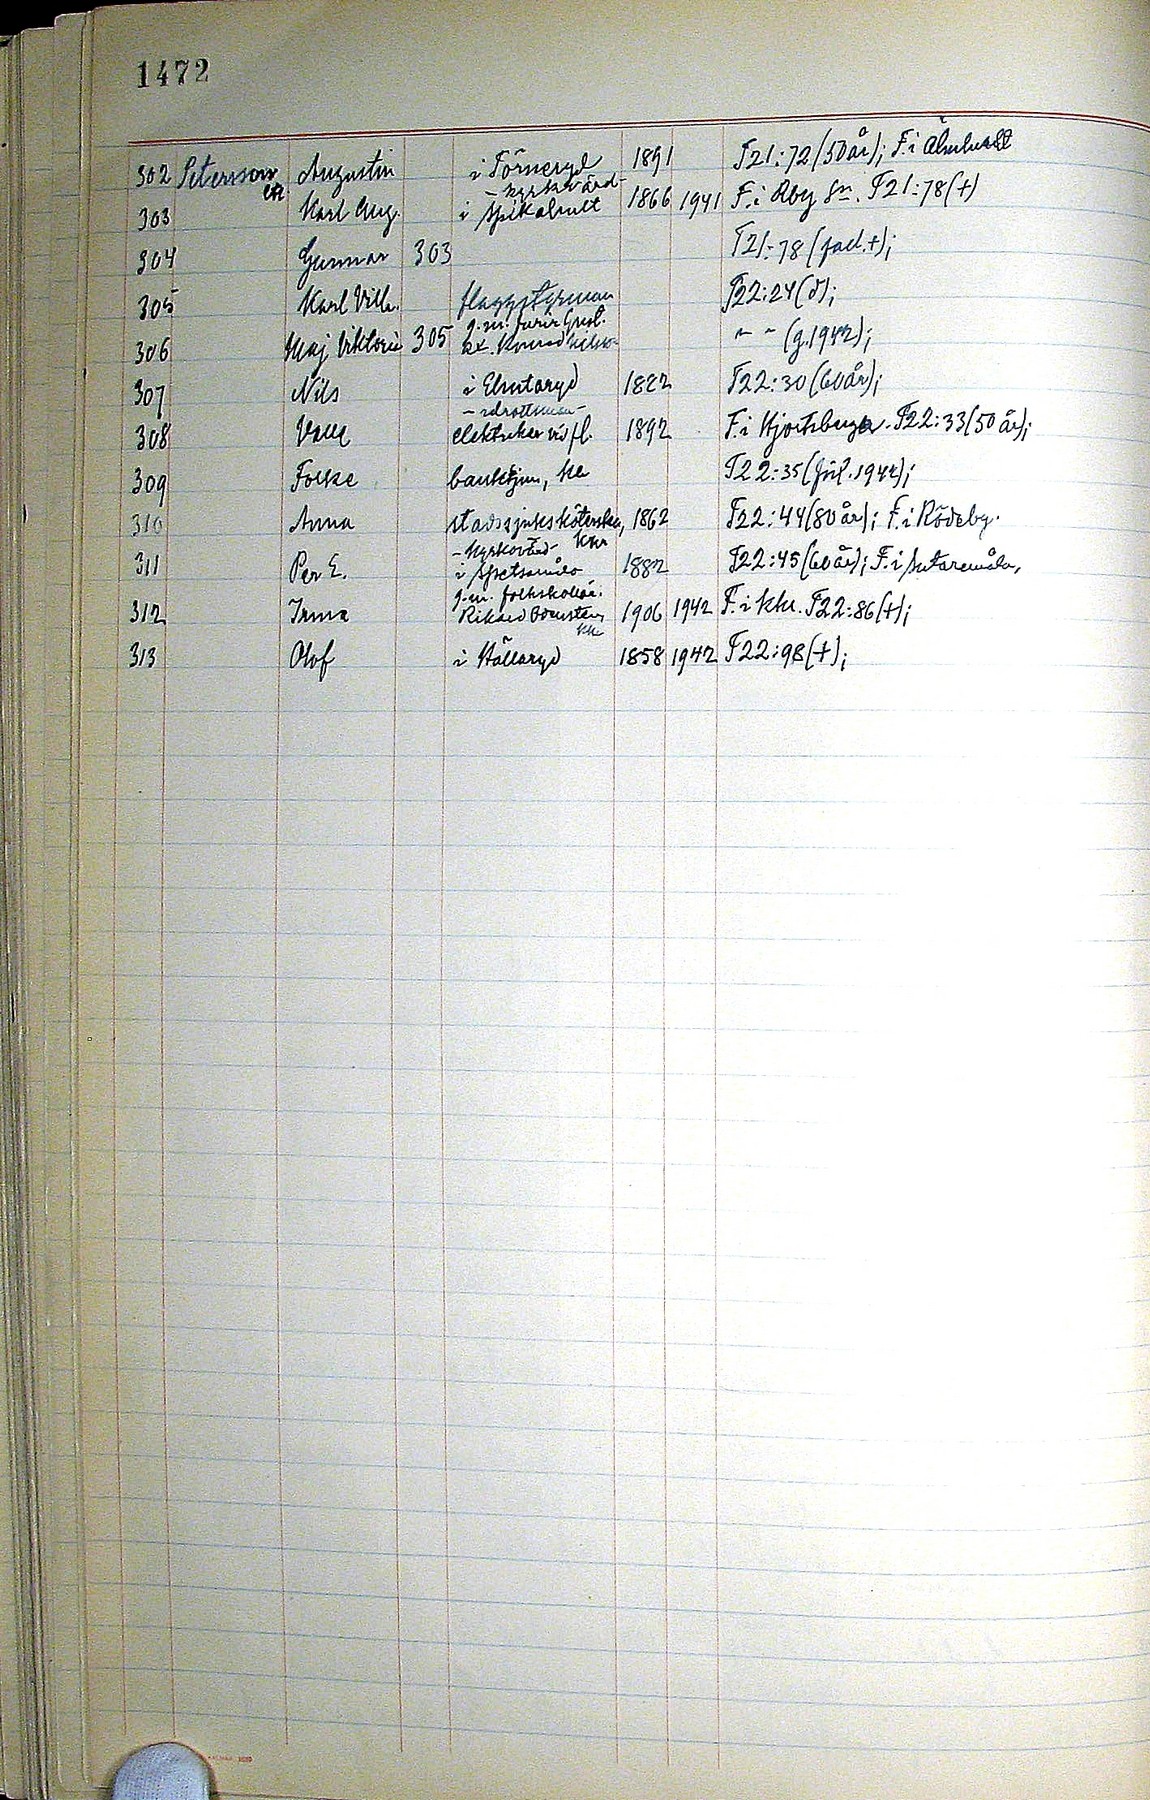 1472
302 Petersson Augustin i Törneryd 1891 F21:72 (50 år); F. i Älmhult
303 Karl Aug. - kyrkvärd - i Spikahult 1866 1941 F. i Rby sn. F21:78 (+)
304 Gunnar 303 F21:78 (fad. +);
305 Karl Vilh. flaggstyrman F22:24 (d);
306 Maj Viktoria 305 g. m. furir Gust. Konrad F22 " - (g. 1942);
307 Nils i Elsutaryd 1882 F22:30 (60 år);
308 elektriker vid fl. 1892 F. i Hjortsberga. F22:33 (50 år);
309 Folke banktjm, kla F22:35 (förl. 1942);
310 Anna stadssjuksköterska, 1862 F22:44 (80 år); F. i Rödeby.
311 Per E. - kyrkovärd - i Spetsamåla 1882 F22:45 (60 år); F. i Sutaremåla,
312 Irma g. m. folkskollär. Rikard 1906 1942 F. i Khr. F22:86 (+);
313 Olof i Hällaryd 1858 1942 F22:98 (+);